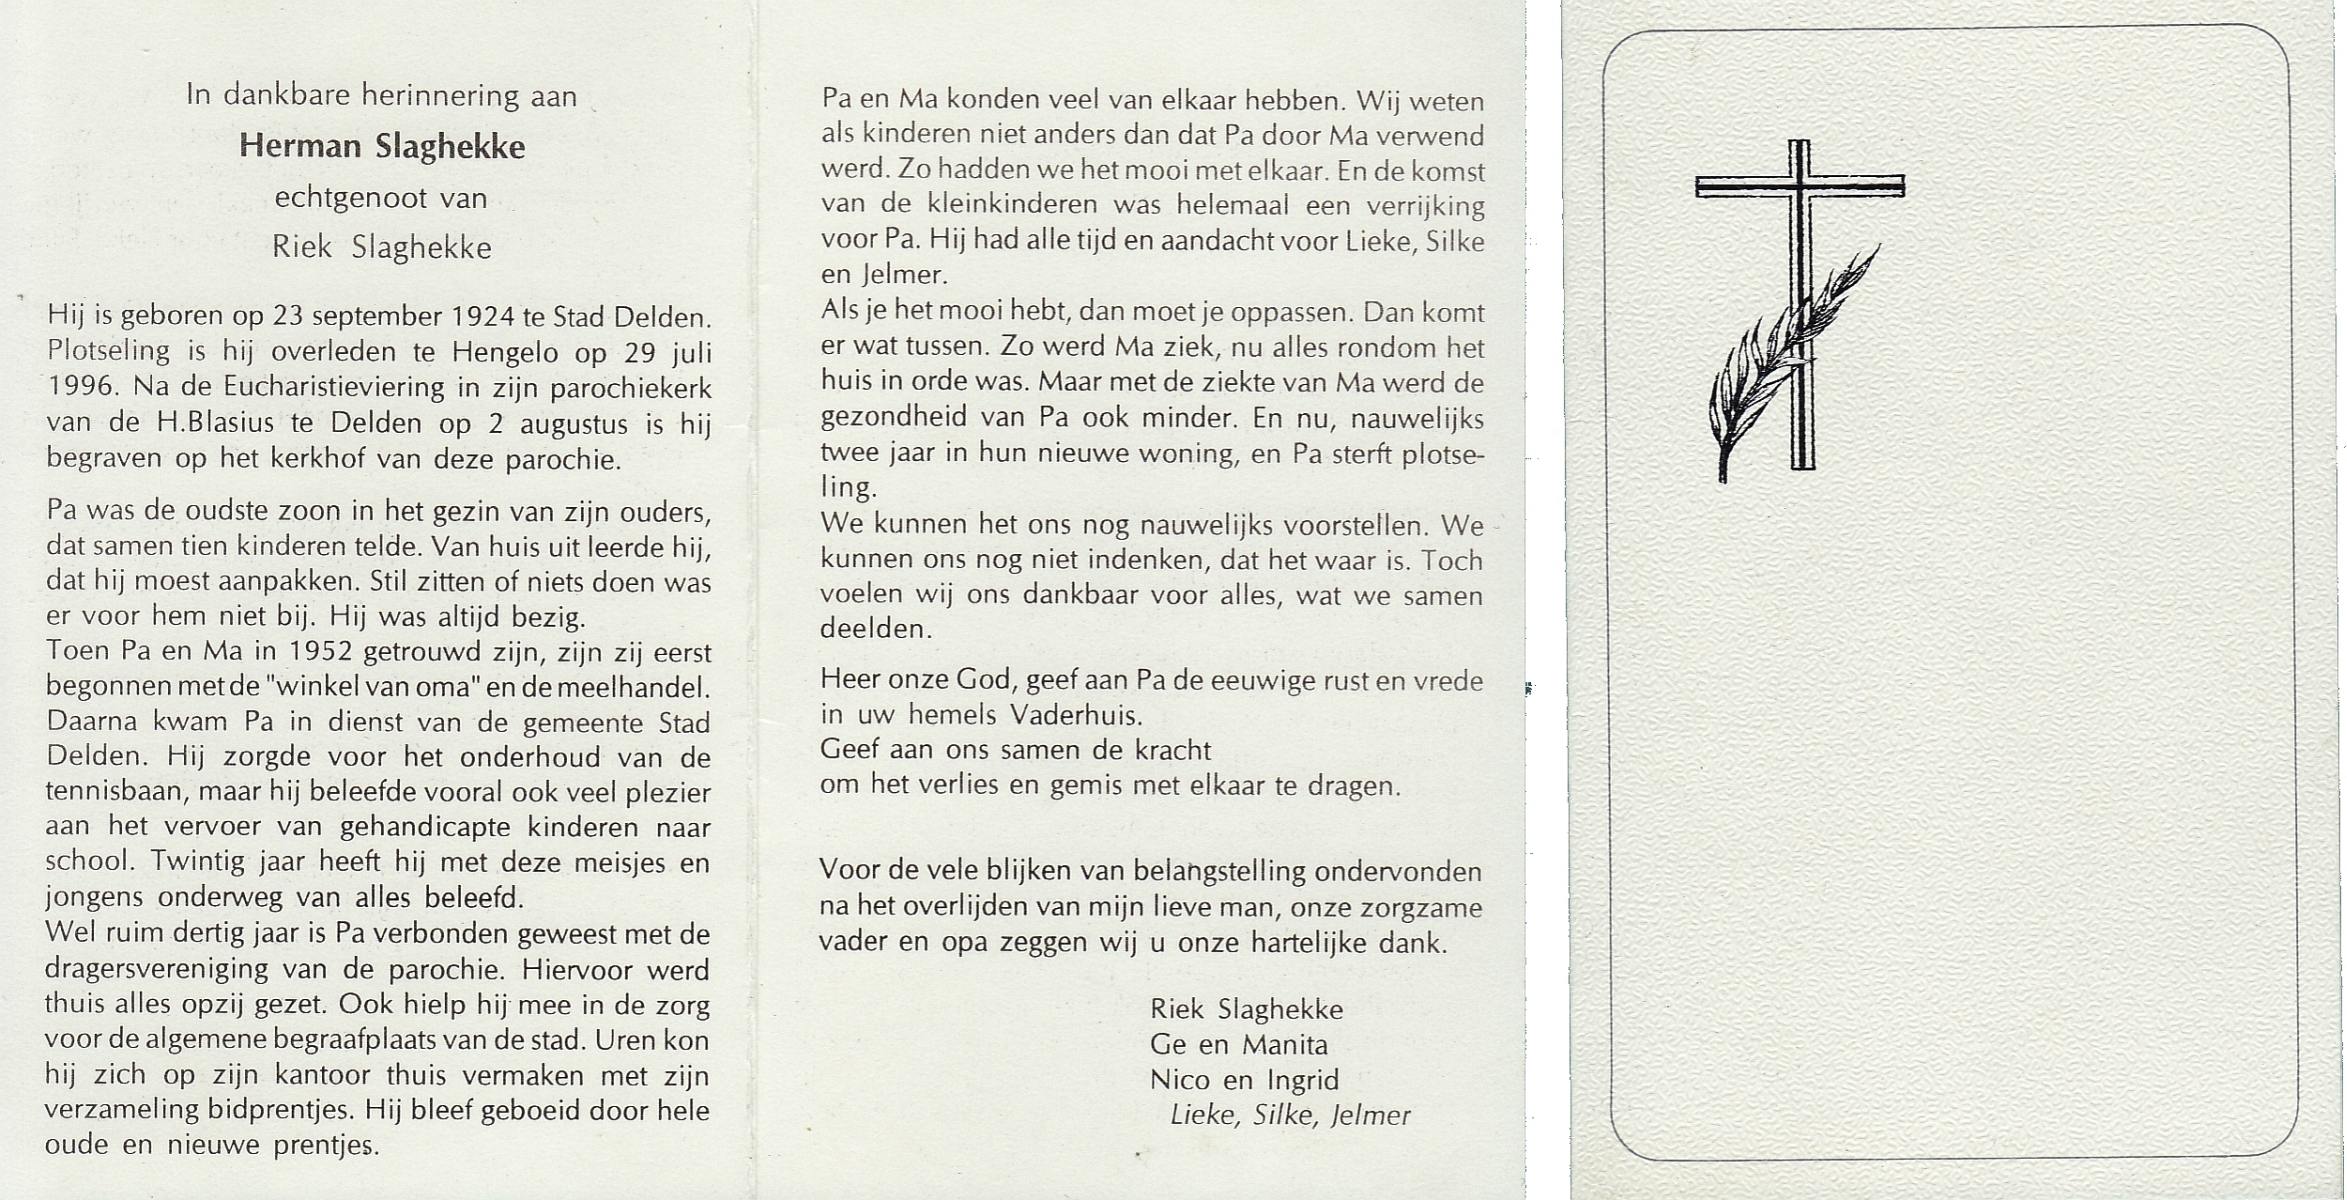 In dankbare herinnering aan
Herman Slaghekke
echtgenoot van
Riek Slaghekke
Hij is geboren op 23 september 1924 te Stad Delden.
Plotseling is hij overleden te Hengelo op 29 juli
1996. Na de Eucharistieviering in zijn parochiekerk
van de H.Blasius te Delden op 2 augustus is hij
begraven op het kerkhof van deze parochie.
Pa was de oudste zoon in het gezin van zijn ouders,
dat samen tien kinderen telde. Van huis uit leerde hij,
dat hij moest aanpakken. Stil zitten of niets doen was
er voor hem niet bij. Hij was altijd bezig.
Toen Pa en Ma in 1952 getrouwd zijn, zijn zij eerst
begonnen met de "winkel van oma" en de meelhandel.
Daarna kwam Pa in dienst van de gemeente Stad
Delden. Hij zorgde voor het onderhoud van de
tennisbaan, maar hij beleefde vooral ook veel plezier
aan het vervoer van gehandicapte kinderen naar
school. Twintig jaar heeft hij met deze meisjes en
jongens onderweg van alles beleefd.
Wel ruim dertig jaar is Pa verbonden geweest met de
dragersvereniging van de parochie. Hiervoor werd
thuis alles opzij gezet. Ook hielp hij mee in de zorg
voor de algemene begraafplaats van de stad. Uren kon
hij zich op zijn kantoor thuis vermaken met zijn
verzameling bidprentjes. Hij bleef geboeid door hele
oude en nieuwe prentjes.
Pa en Ma konden veel van elkaar hebben. Wij weten
als kinderen niet anders dan dat Pa door Ma verwend
werd. Zo hadden we het mooi met elkaar. En de komst
van de kleinkinderen was helemaal een verrijking
voor Pa. Hij had alle tijd en aandacht voor Lieke, Silke
en Jelmer.
Als je het mooi hebt, dan moet je oppassen. Dan komt
er wat tussen. Zo werd Ma ziek, nu alles rondom het
huis in orde was. Maar met de ziekte van Ma werd de
gezondheid van Pa ook minder. En nu, nauwelijks
twee jaar in hun nieuwe woning, en Pa sterft plotse-
ling.
We kunnen het ons nog nauwelijks voorstellen. We
kunnen ons nog niet indenken, dat het waar is. Toch
voelen wij ons dankbaar voor alles, wat we samen
deelden.
Heer onze God, geef aan Pa de eeuwige rust en vrede
in uw hemels Vaderhuis.
Geef aan ons samen de kracht
om het verlies en gemis met elkaar te dragen.
Voor de vele blijken van belangstelling ondervonden
na het overlijden van mijn lieve man, onze zorgzame
vader en opa zeggen wij u onze hartelijke dank.
Riek Slaghekke
Ge en Manita
Nico en Ingrid
Lieke, Silke, Jelmer